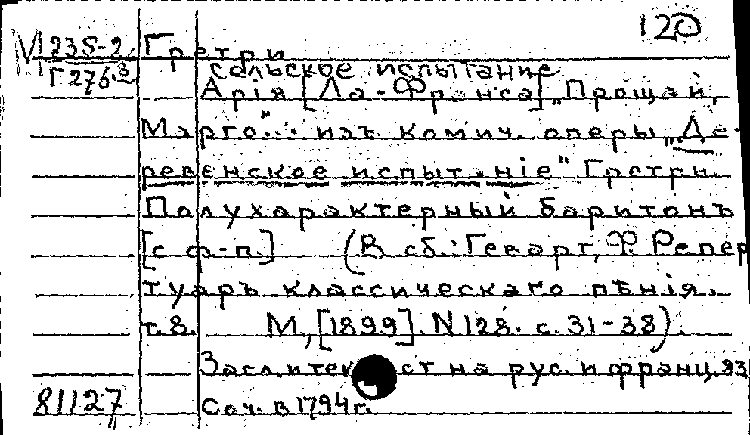 120
М 235-2 Гретри
Г 276.3 сельское испытание
Арія [Ла-Франса] „Прощай,
Марго“... изъ комич. оперы „Де-
ревенское испытаніе" Гретри.
Полухарактерный баритонъ
[с ф-п.] (В сб.: Геварт, Ф. Репер
туаръ классическаго пѣнія.
т.8. М, [1899]. N 128. с. 31-38).
на рус. и франц. яз
81127 Соч. в 1794 г.